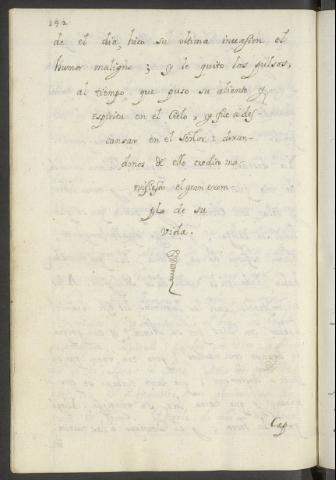 192
de el dia, hizo su ultima invasion el
humor maligno; y le quitó los pulsos,
al tiempo, que puso su aliento y
espiritu en el Cielo, y fue à des-
cansar en el Señor: dexan-
donos de ello credito ma-
nifiesto el gran exem-
plo de su
vida.
Cap.